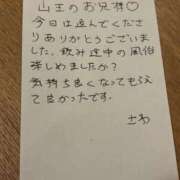 山王のお兄様♡
今日は遊んでくださ
りありがとうございま
した。飲み途中の風俗
楽しめましたか?
気持ち良くなってもらえ
て良かったです。
さわ